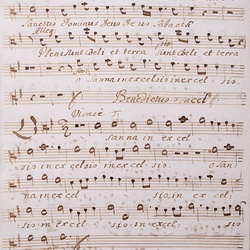 Sanctus Dominus Deus Deus Sabaoth
Pleni sunt Coeli et terra sunt coeli et terra
sanna in excelsis in excel sis
Benedictus tacet
Vivace
sanna in excel
sis in excelsis in excel sis o san
na in excel sis in ex cel
sis in excel sis in excel sis